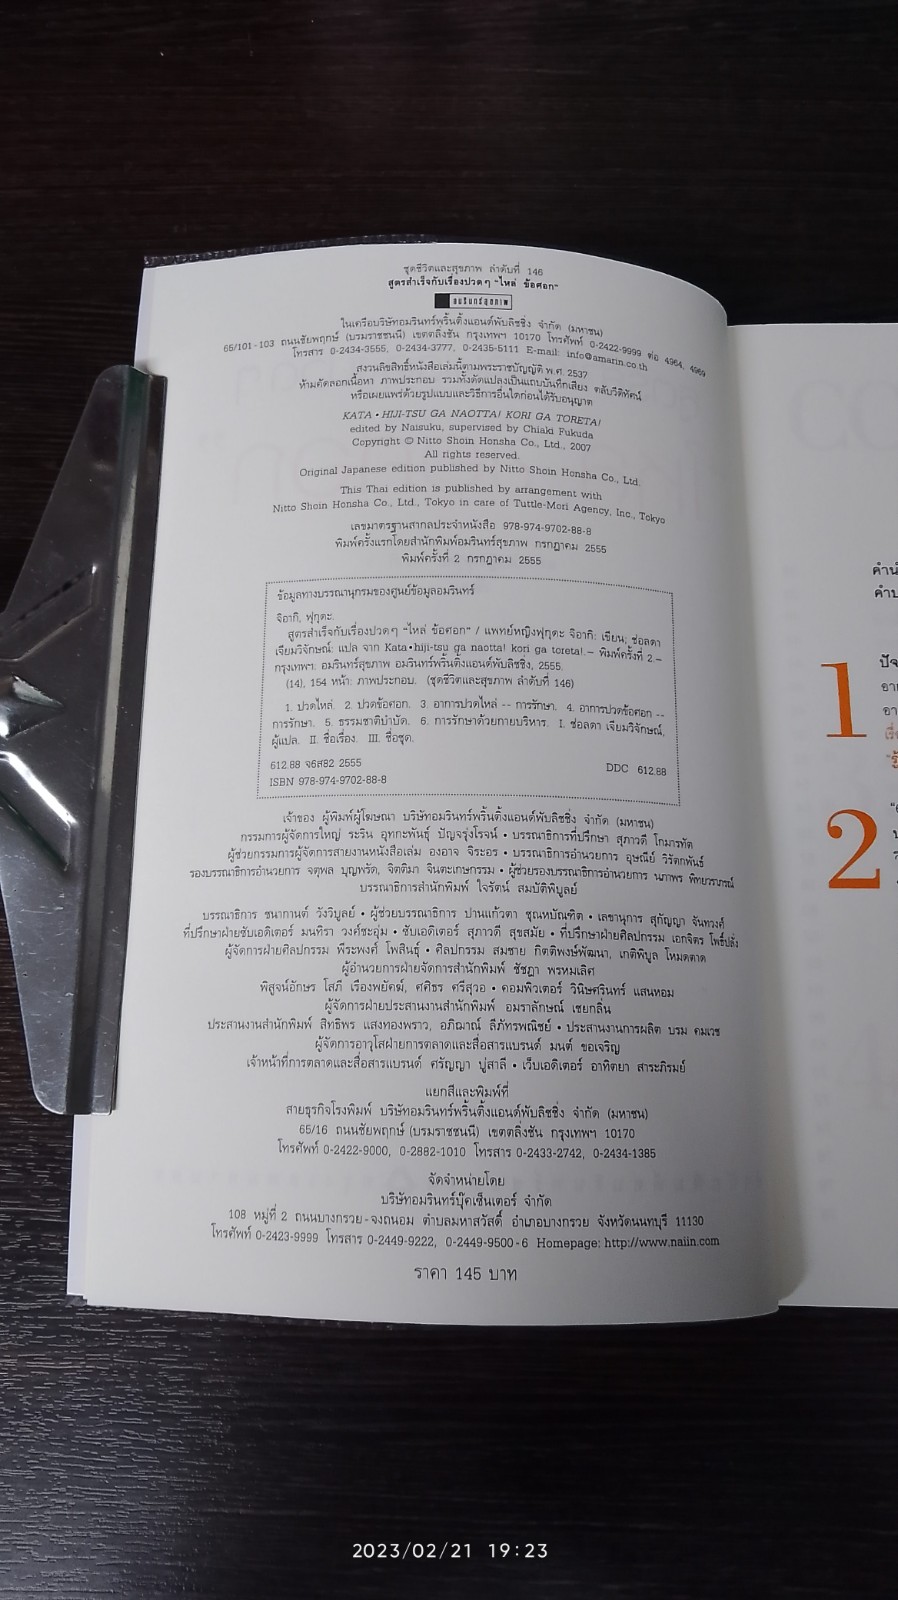 ชุดชีวิตและสุขภาพ ลำดับที่ 146
สูตรสำเร็จกับเรื่องปวดๆ "ไหล่ ข้อศอก"
อมรินทร์สุขภาพ
ในเครือบริษัทอมรินทร์พริ้นติ้งแอนด์พับลิชชิ่ง จำกัด (มหาชน)
65/101-103 ถนนชัยพฤกษ์ (บรมราชชนนี) เขตตลิ่งชัน กรุงเทพฯ 10170 โทรศัพท์ 0-2422-9999 ต่อ 4964, 4969
โทรสาร 0-2434-3555, 0-2434-3777, 0-2435-5111 E-mail: info@amarin.co.th
สงวนลิขสิทธิ์หนังสือเล่มนี้ตามพระราชบัญญัติ พ.ศ. 2537
ห้ามคัดลอกเนื้อหา ภาพประกอบ รวมทั้งดัดแปลงเป็นแถบบันทึกเสียง ตลับวีดิทัศน์
หรือเผยแพร่ด้วยรูปแบบและวิธีการอื่นใดก่อนได้รับอนุญาต
KATA • HIJI-TSU GA NAOTTA! KORI GA TORETA!
edited by Naisuku, supervised by Chiaki Fukuda
Copyright © Nitto Shoin Honsha Co., Ltd., 2007
All rights reserved.
Original Japanese edition published by Nitto Shoin Honsha Co., Ltd.
This Thai edition is published by arrangement with
Nitto Shoin Honsha Co., Ltd., Tokyo in care of Tuttle-Mori Agency, Inc., Tokyo
เลขมาตรฐานสากลประจำหนังสือ 978-974-9702-88-8
พิมพ์ครั้งแรกโดยสำนักพิมพ์อมรินทร์สุขภาพ กรกฎาคม 2555
พิมพ์ครั้งที่ 2 กรกฎาคม 2555
ข้อมูลทางบรรณานุกรมของศูนย์ข้อมูลอมรินทร์
จิอากิ, ฟุกุดะ.
สูตรสำเร็จกับเรื่องปวดๆ "ไหล่ ข้อศอก" / แพทย์หญิงฟุกุดะ จิอากิ: เขียน; ช่อลดา
เจียมวิจักษณ์: แปล จาก Kata•hiji-tsu ga naotta! kori ga toreta!.– พิมพ์ครั้งที่ 2.–
กรุงเทพฯ: อมรินทร์สุขภาพ อมรินทร์พริ้นติ้งแอนด์พับลิชชิ่ง, 2555.
(14), 154 หน้า: ภาพประกอบ. (ชุดชีวิตและสุขภาพ ลำดับที่ 146)
1. ปวดไหล่. 2. ปวดข้อศอก. 3. อาการปวดไหล่ -- การรักษา. 4. อาการปวดข้อศอก --
การรักษา. 5. ธรรมชาติบำบัด. 6. การรักษาด้วยกายบริหาร. I. ช่อลดา เจียมวิจักษณ์,
ผู้แปล. II. ชื่อเรื่อง. III. ชื่อชุด.
612.88 จ6ส82 2555
DDC 612.88
ISBN 978-974-9702-88-8
เจ้าของ ผู้พิมพ์ผู้โฆษณา บริษัทอมรินทร์พริ้นติ้งแอนด์พับลิชชิ่ง จำกัด (มหาชน)
กรรมการผู้จัดการใหญ่ ระริน อุทกะพันธุ์ ปัญจรุ่งโรจน์ • บรรณาธิการที่ปรึกษา สุภาวดี โกมารทัต
ผู้ช่วยกรรมการผู้จัดการสายงานหนังสือเล่ม องอาจ จิระอร • บรรณาธิการอำนวยการ อุษณีย์ วิรัตกพันธ์
รองบรรณาธิการอำนวยการ จตุพล บุญพรัด, จิตติมา จินตะเกษกรรม • ผู้ช่วยรองบรรณาธิการอำนวยการ นภาพร พิทยวราภรณ์
บรรณาธิการสำนักพิมพ์ ใจรัตน์ สมบัติพิบูลย์
บรรณาธิการ ชนากานต์ วังวิบูลย์ • ผู้ช่วยบรรณาธิการ ปานแก้วตา ชุณหบัณฑิต • เลขานุการ สุกัญญา จันทวงศ์
ที่ปรึกษาฝ่ายซับเอดิเตอร์ มนทิรา วงศ์ชะอุ่ม • ซับเอดิเตอร์ สุภาวดี สุขสมัย • ที่ปรึกษาฝ่ายศิลปกรรม เอกจิตร โพธิ์ปลั่ง
ผู้จัดการฝ่ายศิลปกรรม พีระพงศ์ โพสินธุ์ • ศิลปกรรม สมชาย กิตติพงษ์พัฒนา, เกติพิบูล โหมดตาด
ผู้อำนวยการฝ่ายจัดการสำนักพิมพ์ ชัชฎา พรหมเลิศ
พิสูจน์อักษร โสภี เรืองพยัคฆ์, ศศิธร ศรีสุวอ • คอมพิวเตอร์ วินิษศรินทร์ แสนหอม
ผู้จัดการฝ่ายประสานงานสำนักพิมพ์ อมราลักษณ์ เชยกลิ่น
ประสานงานสำนักพิมพ์ สิทธิพร แสงทองพราว, อภิฌาณ์ ลีภัทรพณิชย์ • ประสานงานการผลิต บรม คมเวช
ผู้จัดการอาวุโสฝ่ายการตลาดและสื่อสารแบรนด์ มนต์ ขอเจริญ
เจ้าหน้าที่การตลาดและสื่อสารแบรนด์ ศรัญญา นู่สาลี • เว็บเอดิเตอร์ อาทิตยา สาระภิรมย์
แยกสีและพิมพ์ที่
สายธุรกิจโรงพิมพ์ บริษัทอมรินทร์พริ้นติ้งแอนด์พับลิชชิ่ง จำกัด (มหาชน)
65/16 ถนนชัยพฤกษ์ (บรมราชชนนี) เขตตลิ่งชัน กรุงเทพฯ 10170
โทรศัพท์ 0-2422-9000, 0-2882-1010 โทรสาร 0-2433-2742, 0-2434-1385
จัดจำหน่ายโดย
บริษัทอมรินทร์บุ๊คเซ็นเตอร์ จำกัด
108 หมู่ที่ 2 ถนนบางกรวย-จงถนอม ตำบลมหาสวัสดิ์ อำเภอบางกรวย จังหวัดนนทบุรี 11130
โทรศัพท์ 0-2423-9999 โทรสาร 0-2449-9222, 0-2449-9500-6 Homepage: http://www.naiin.com
ราคา 145 บาท
1
2
2023/02/21 19:23